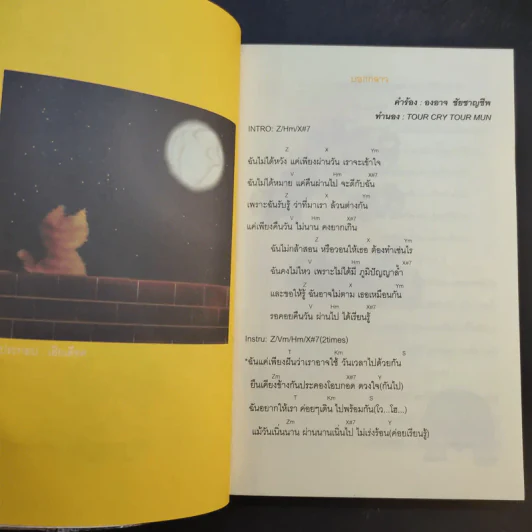 แมวเหมียว
คำร้อง : องอาจ ชัยชาญชีพ
ทำนอง : TOUR CRY TOUR MUN
INTRO: Z/Hm/X#7
Z X Ym
ฉันไม่ได้หวัง แค่เพียงผ่านวัน เราจะเข้าใจ
V Hm X#7
ฉันไม่ได้หมาย แค่คืนผ่านไป จะดีกับฉัน
Z X Ym
เพราะฉันรับรู้ ว่าที่มาเรา ล้วนต่างกัน
V Hm X#7
แค่เพียงคืนวัน ไม่นาน คงยากเกิน
Z X Ym
ฉันไม่กล้าสอน หรือวอนให้เธอ ต้องทำเช่นไร
V Hm X#7
ฉันคงไม่ไหว เพราะไม่ได้มี ภูมิปัญญาล้ำ
Z X Ym
และขอให้รู้ ฉันอาจไม่ตาม เธอเหมือนกัน
V Hm X#7
รอคอยคืนวัน ผ่านไป ได้เรียนรู้
Instru: Z/Vm/Hm/X#7(2times)
T Km S
*ฉันแค่เพียงฝันว่าเราอาจใช้ วันเวลาไปด้วยกัน
Zm X#7 Y
ยืนเคียงข้างกันประคองโอบกอด ดวงใจ(กันไป)
T Km S
ฉันอยากให้เรา ค่อยๆเดิน ไปพร้อมกัน(โว...โฮ...)
Zm X#7 Y
แม้วันเนิ่นนาน ผ่านนานเนิ่นไป ไม่เร่งร้อน(ค่อยเรียนรู้)